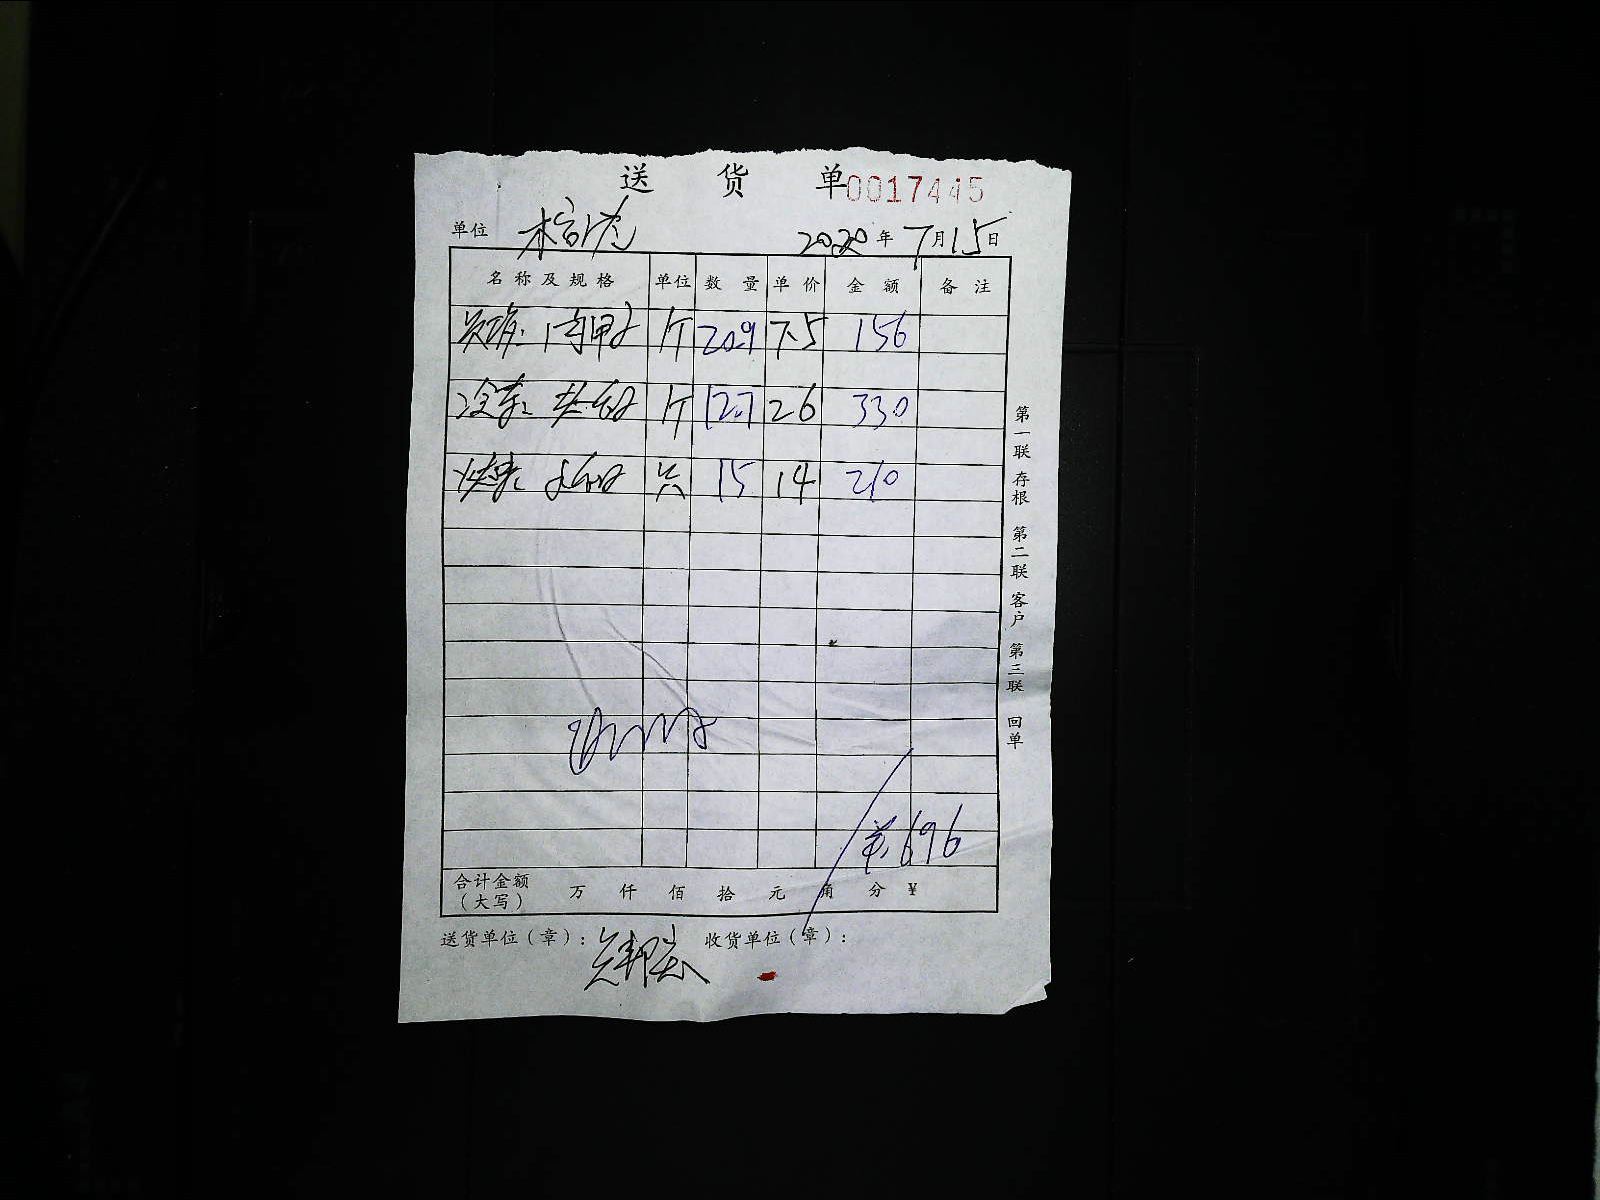 送货单 0017445
单位 2020年7月15日
名称及规格 单位 数量 单价 金额 备注
斤 20.9 7.5 156
斤 12.7 26 330
只 15 14 210
¥696
合计金额
(大写) 万仟佰拾元角分¥
送货单位(章): 收货单位(章):
第一联存根 第二联客户 第三联回单